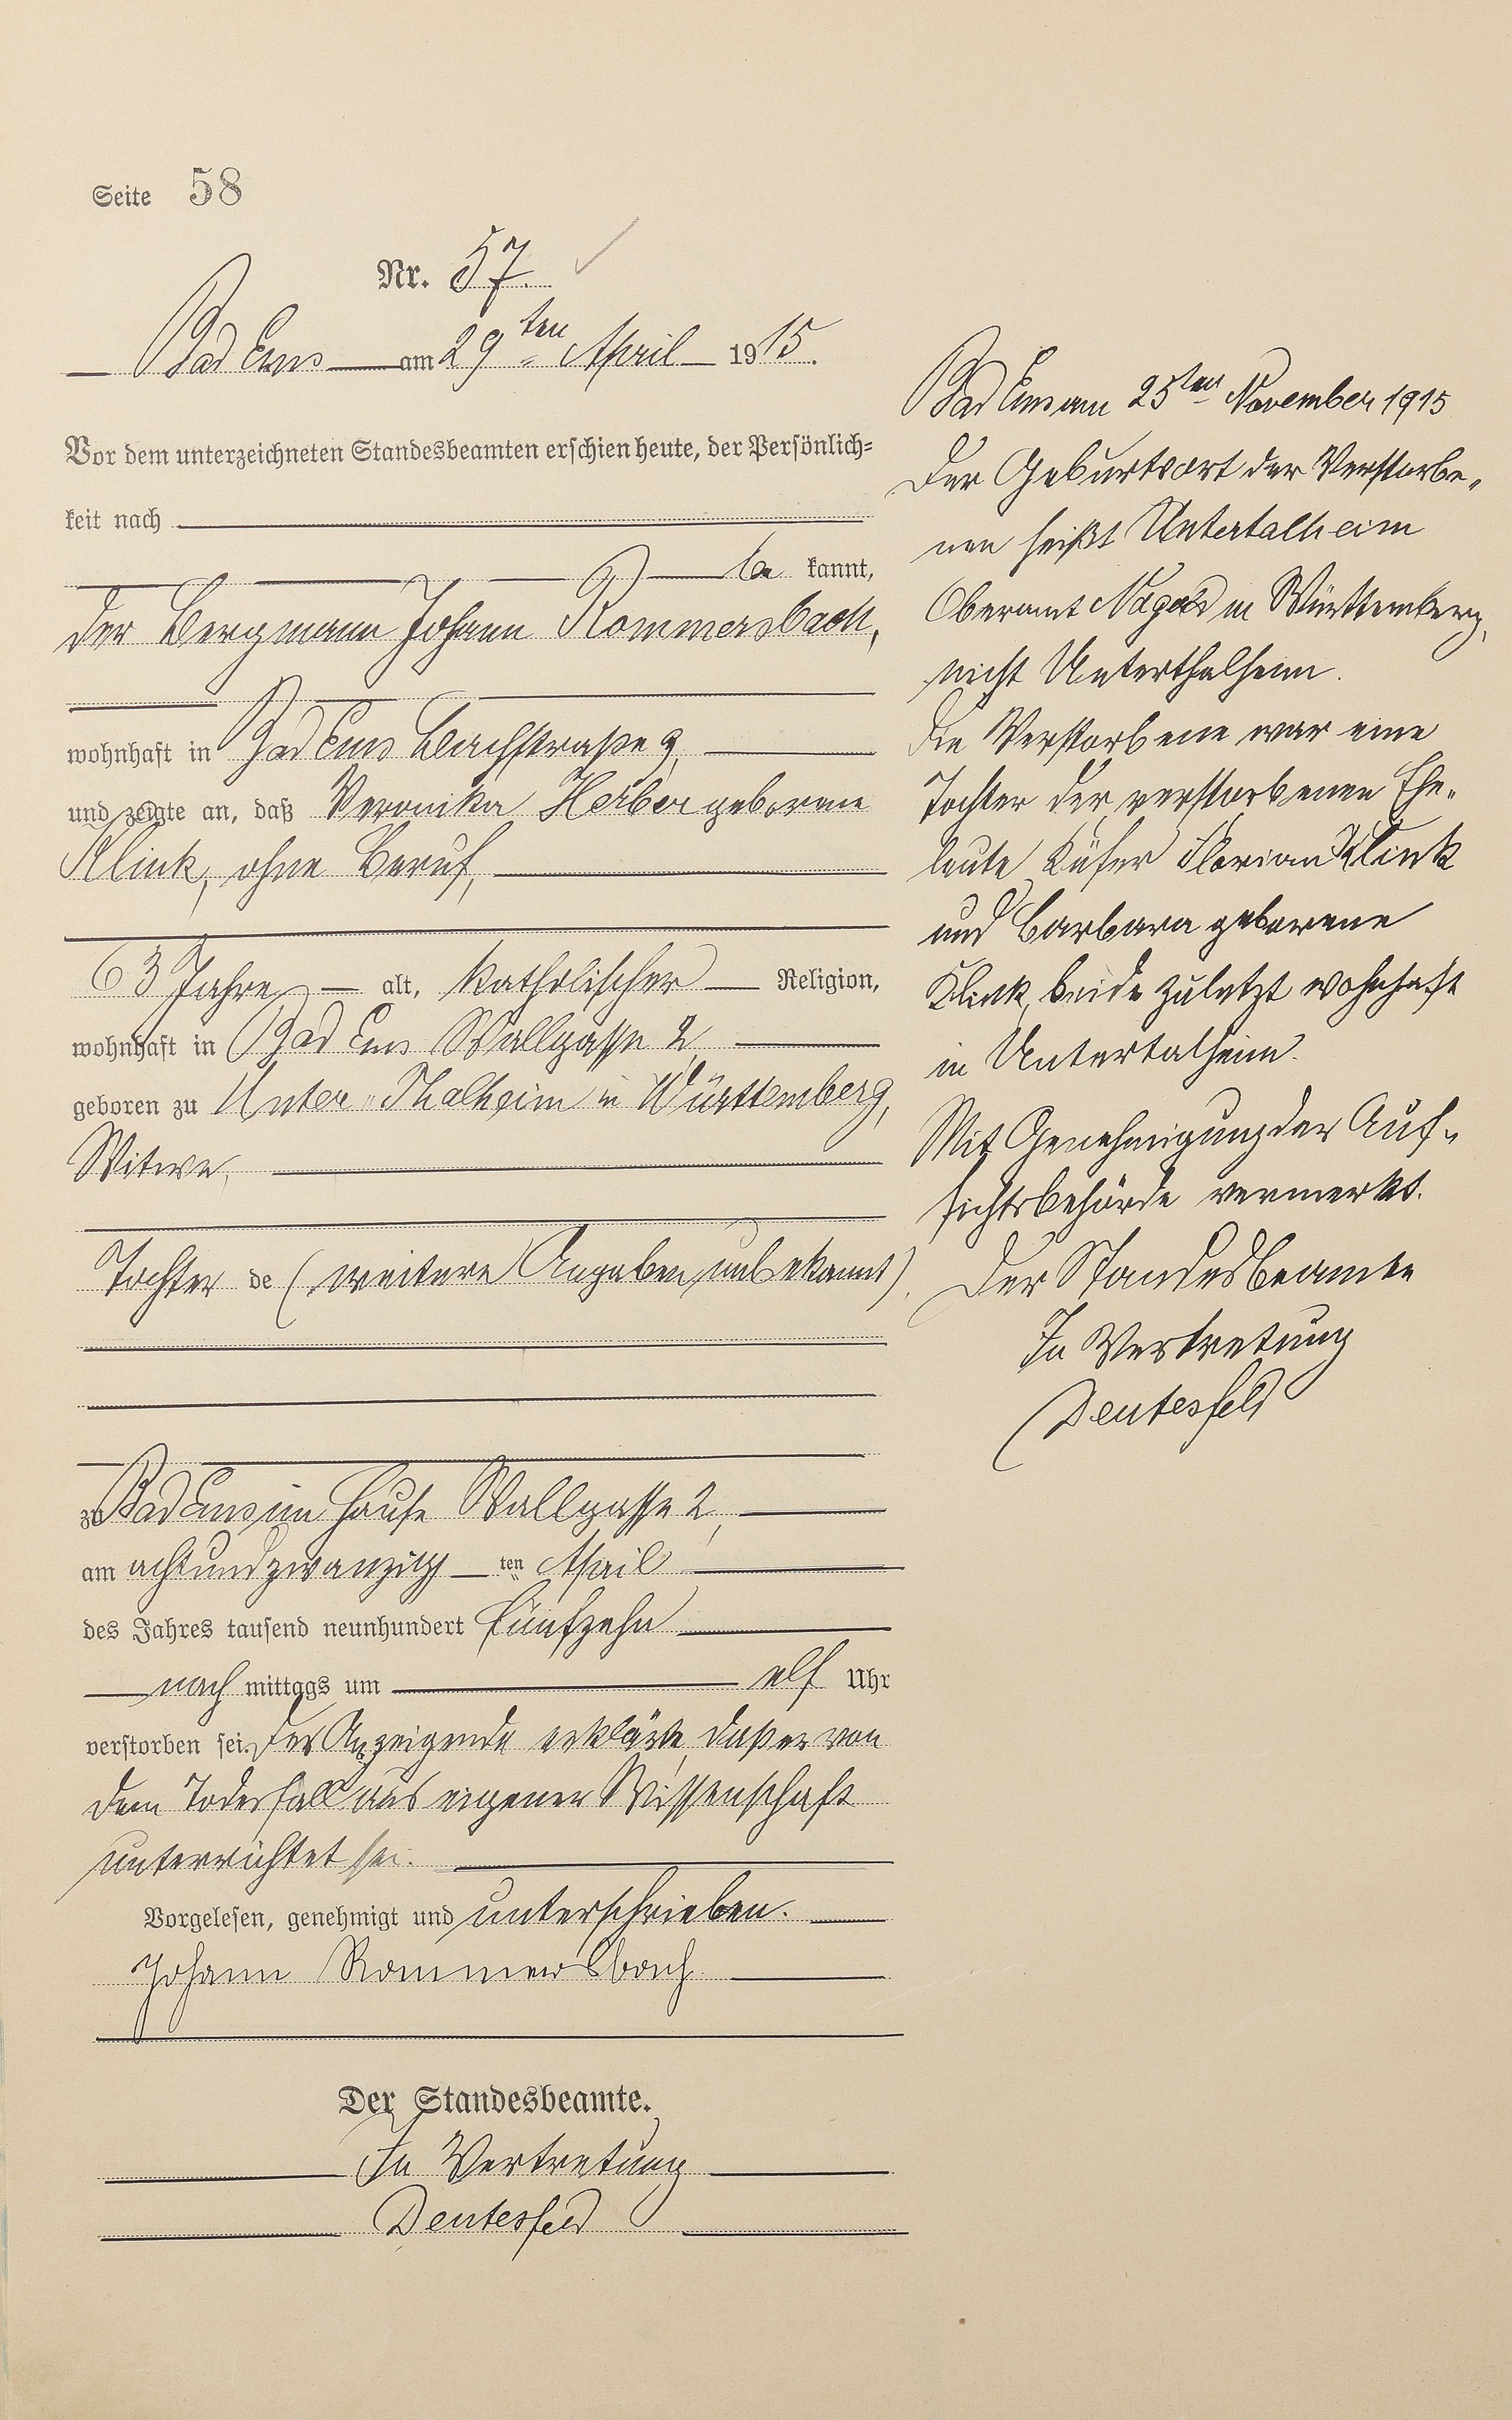 Seite 58
Nr. 57.
Bad Ems am 29ten April 1915.
Vor dem unterzeichneten Standesbeamten erschien heute, der Persönlich=
keit nach
be kannt,
der Bergmann Johann Rommersbach,
wohnhaft in Bad Ems Bachstraße 9,
und zeigte an, daß Veronika Herber geborene
Klink, ohne Beruf,
63 Jahre alt, katholischer Religion,
wohnhaft in Bad Ems Wallgasse 2
geboren zu Unter-Thalheim in Württemberg,
Witwe,
Tochter de (weitere Angaben unbekannt).
zu Bad Ems im Hause Wallgasse 2,
am achtundzwanzig ten April
des Jahres tausend neunhundert fünfzehn
nach mittags um elf Uhr
verstorben sei. Der Anzeigende erklärte, daß er von
dem Todesfall aus eigener Wissenschaft
unterrichtet sei.
Vorgelesen, genehmigt und unterschrieben.
Johann Rommersbach
Der Standesbeamte.
In Vertretung
Deutesfeld
Bad Ems am 25ten November 1915
Der Geburtsort der Verstorbe-
nen heißt Untertalheim
Oberamt Nagold in Württemberg,
nicht Unterthalheim.
Die Verstorbene war eine
Tochter der verstorbenen Ehe-
leute Küfer Florian Klink
und Barbara geborene
Klink, beide zuletzt wohnhaft
in Untertalheim.
Mit Genehmigung der Auf-
sichtsbehörde vermerkt.
Der Standesbeamte
In Vertretung
Deutesfeld